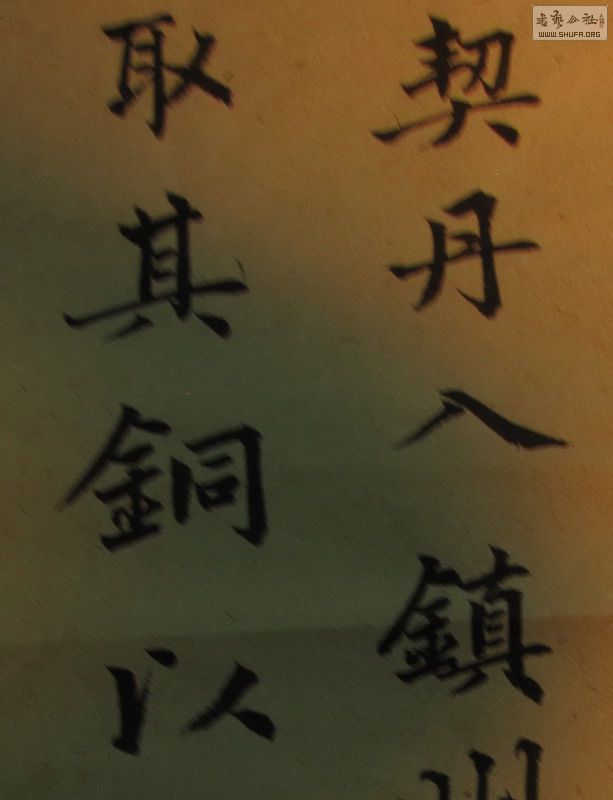 契丹入鎮州
取其銅以
書藝公社
WWW.SHUFA.ORG